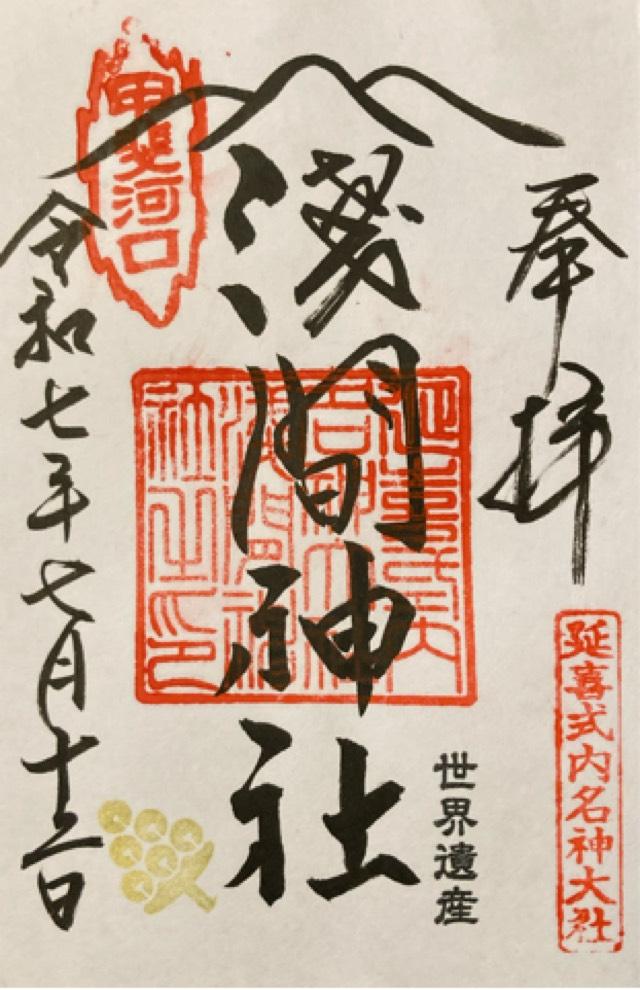 奉拝
延喜式内名神大社
世界遺産
浅間神社
延喜式内名神大社浅間神社之印
甲斐河口
令和七年七月十二日